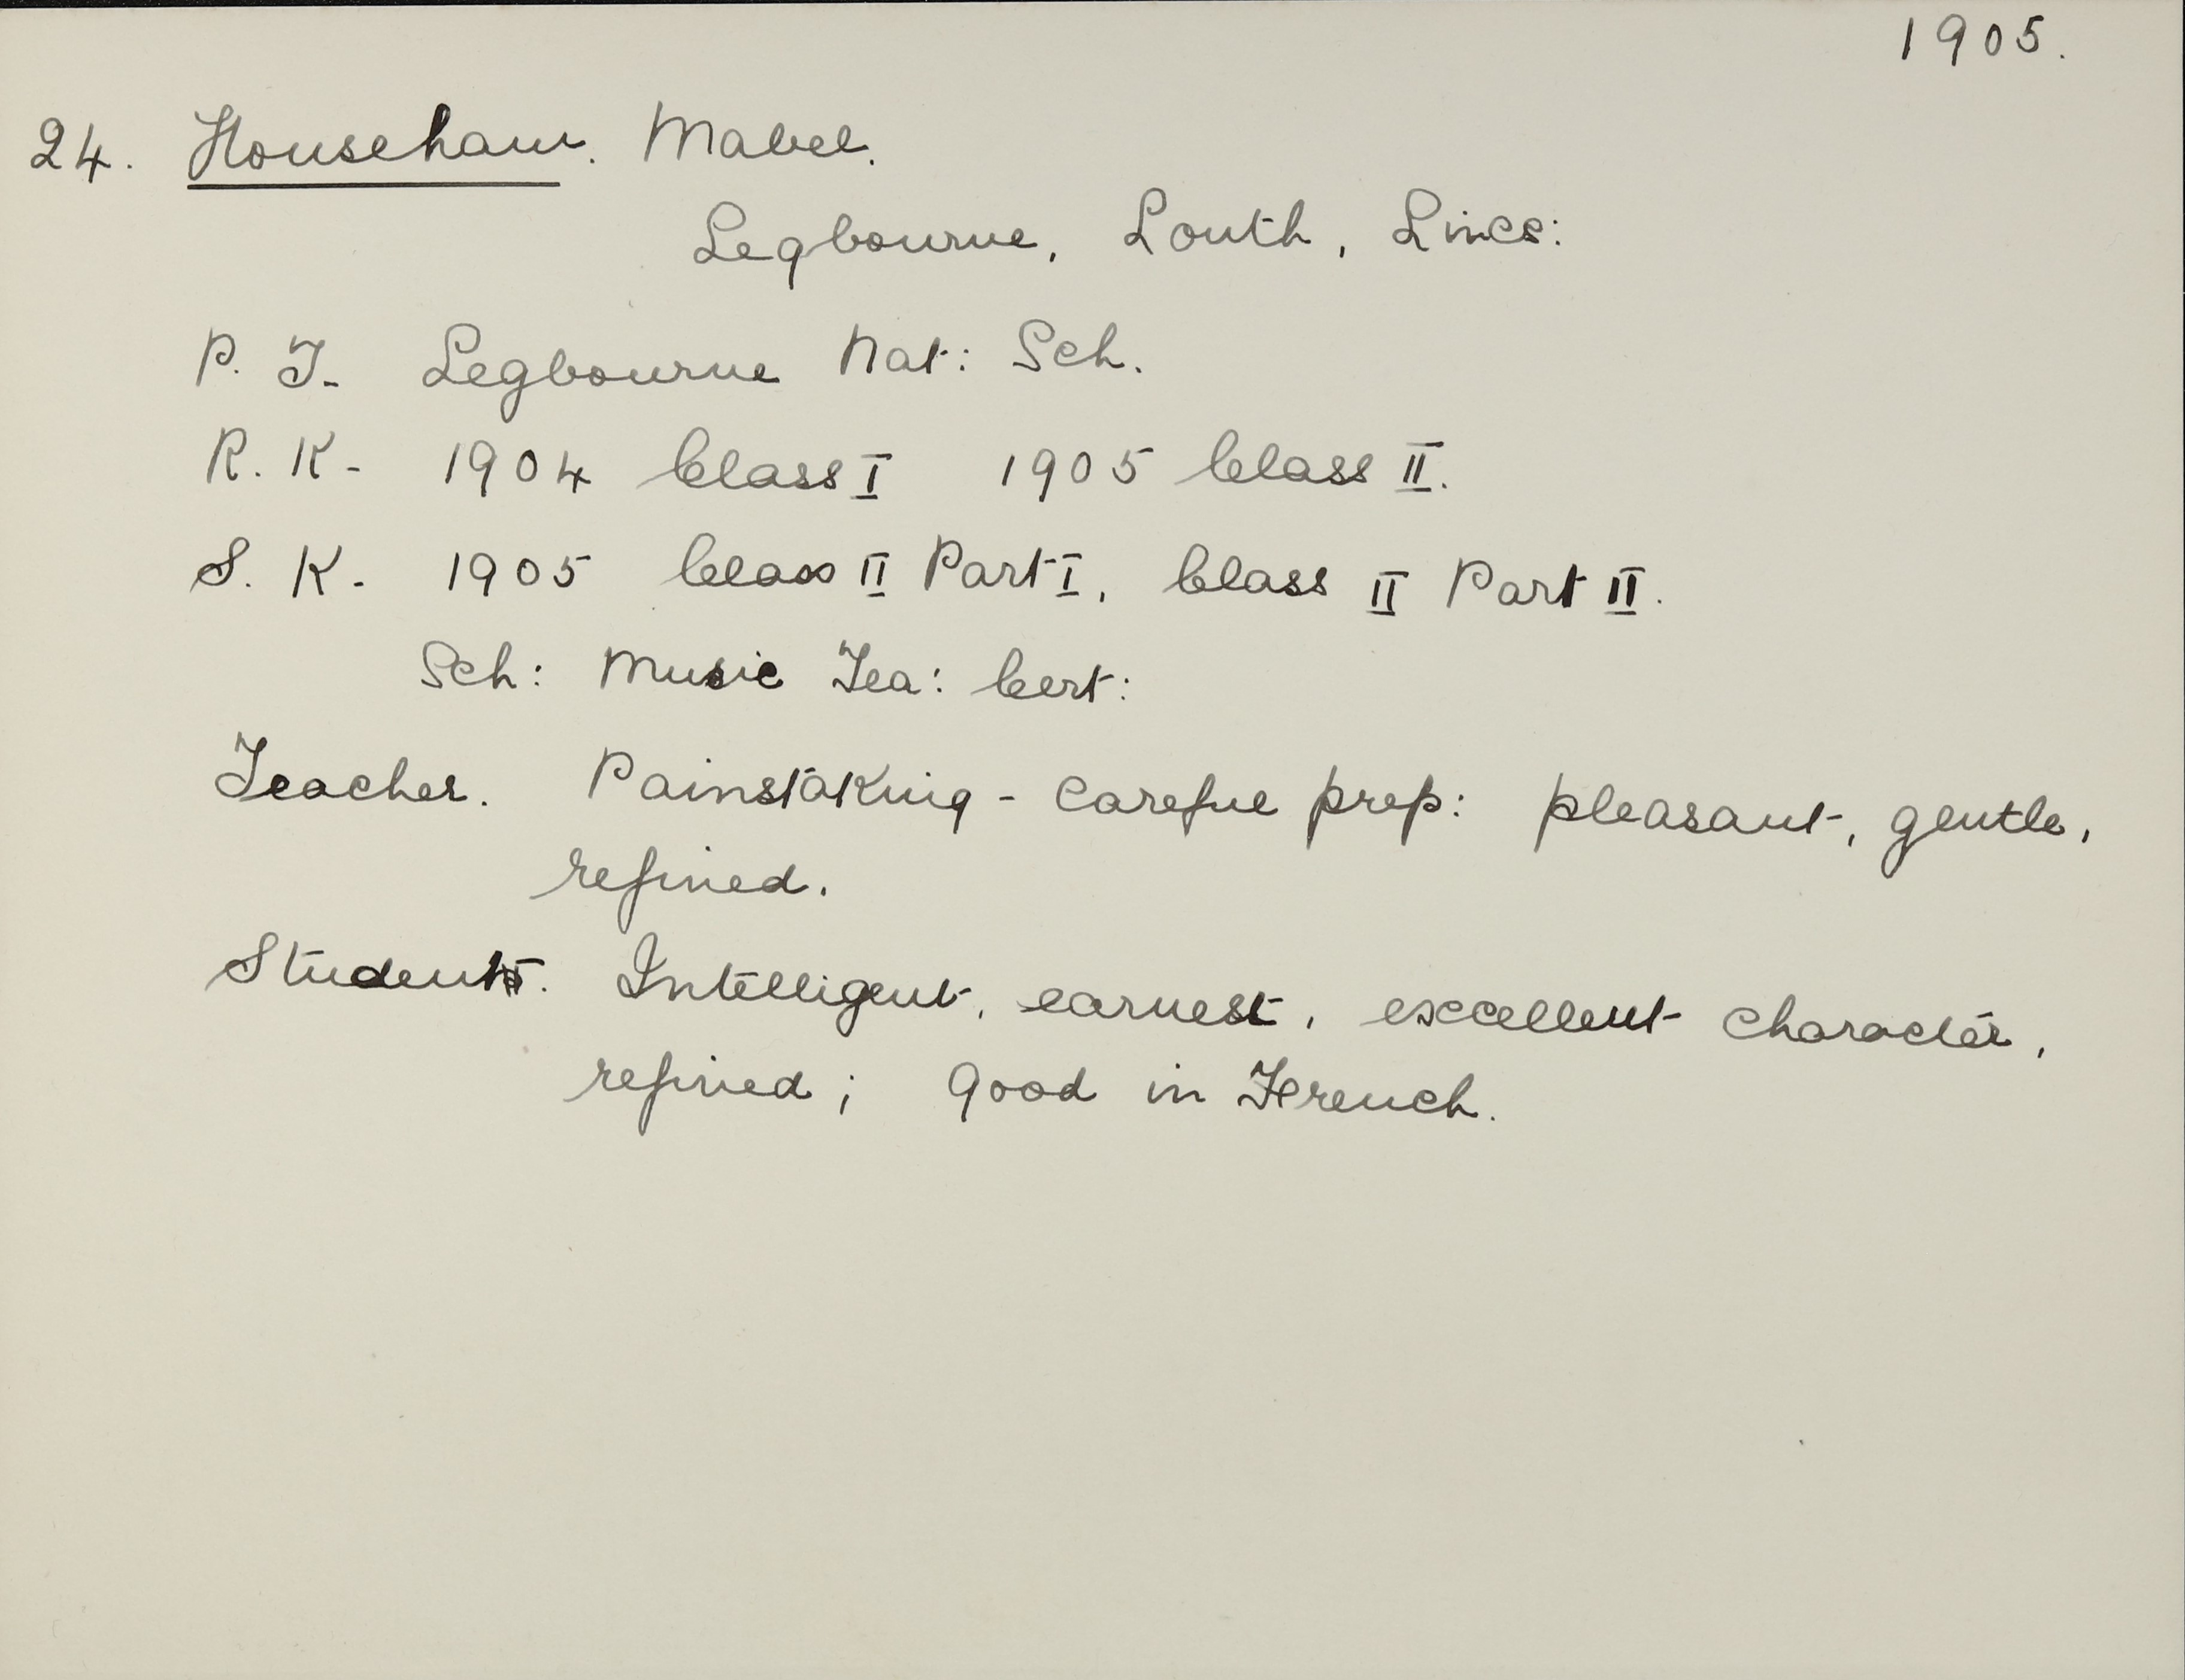 1905.
24. Househam. Mabel.
Legbourne, Louth, Lincs:
P. T. Legbourne Nat: Sch.
R. K. 1904 Class I 1905 Class II.
S. K. 1905 Class II Part I, Class II Part II.
Sch: Music Tea: Cert:
Teacher. Painstaking - careful prep: pleasant, gentle,
refined.
Student. Intelligent, earnest, excellent character,
refined; good in French.